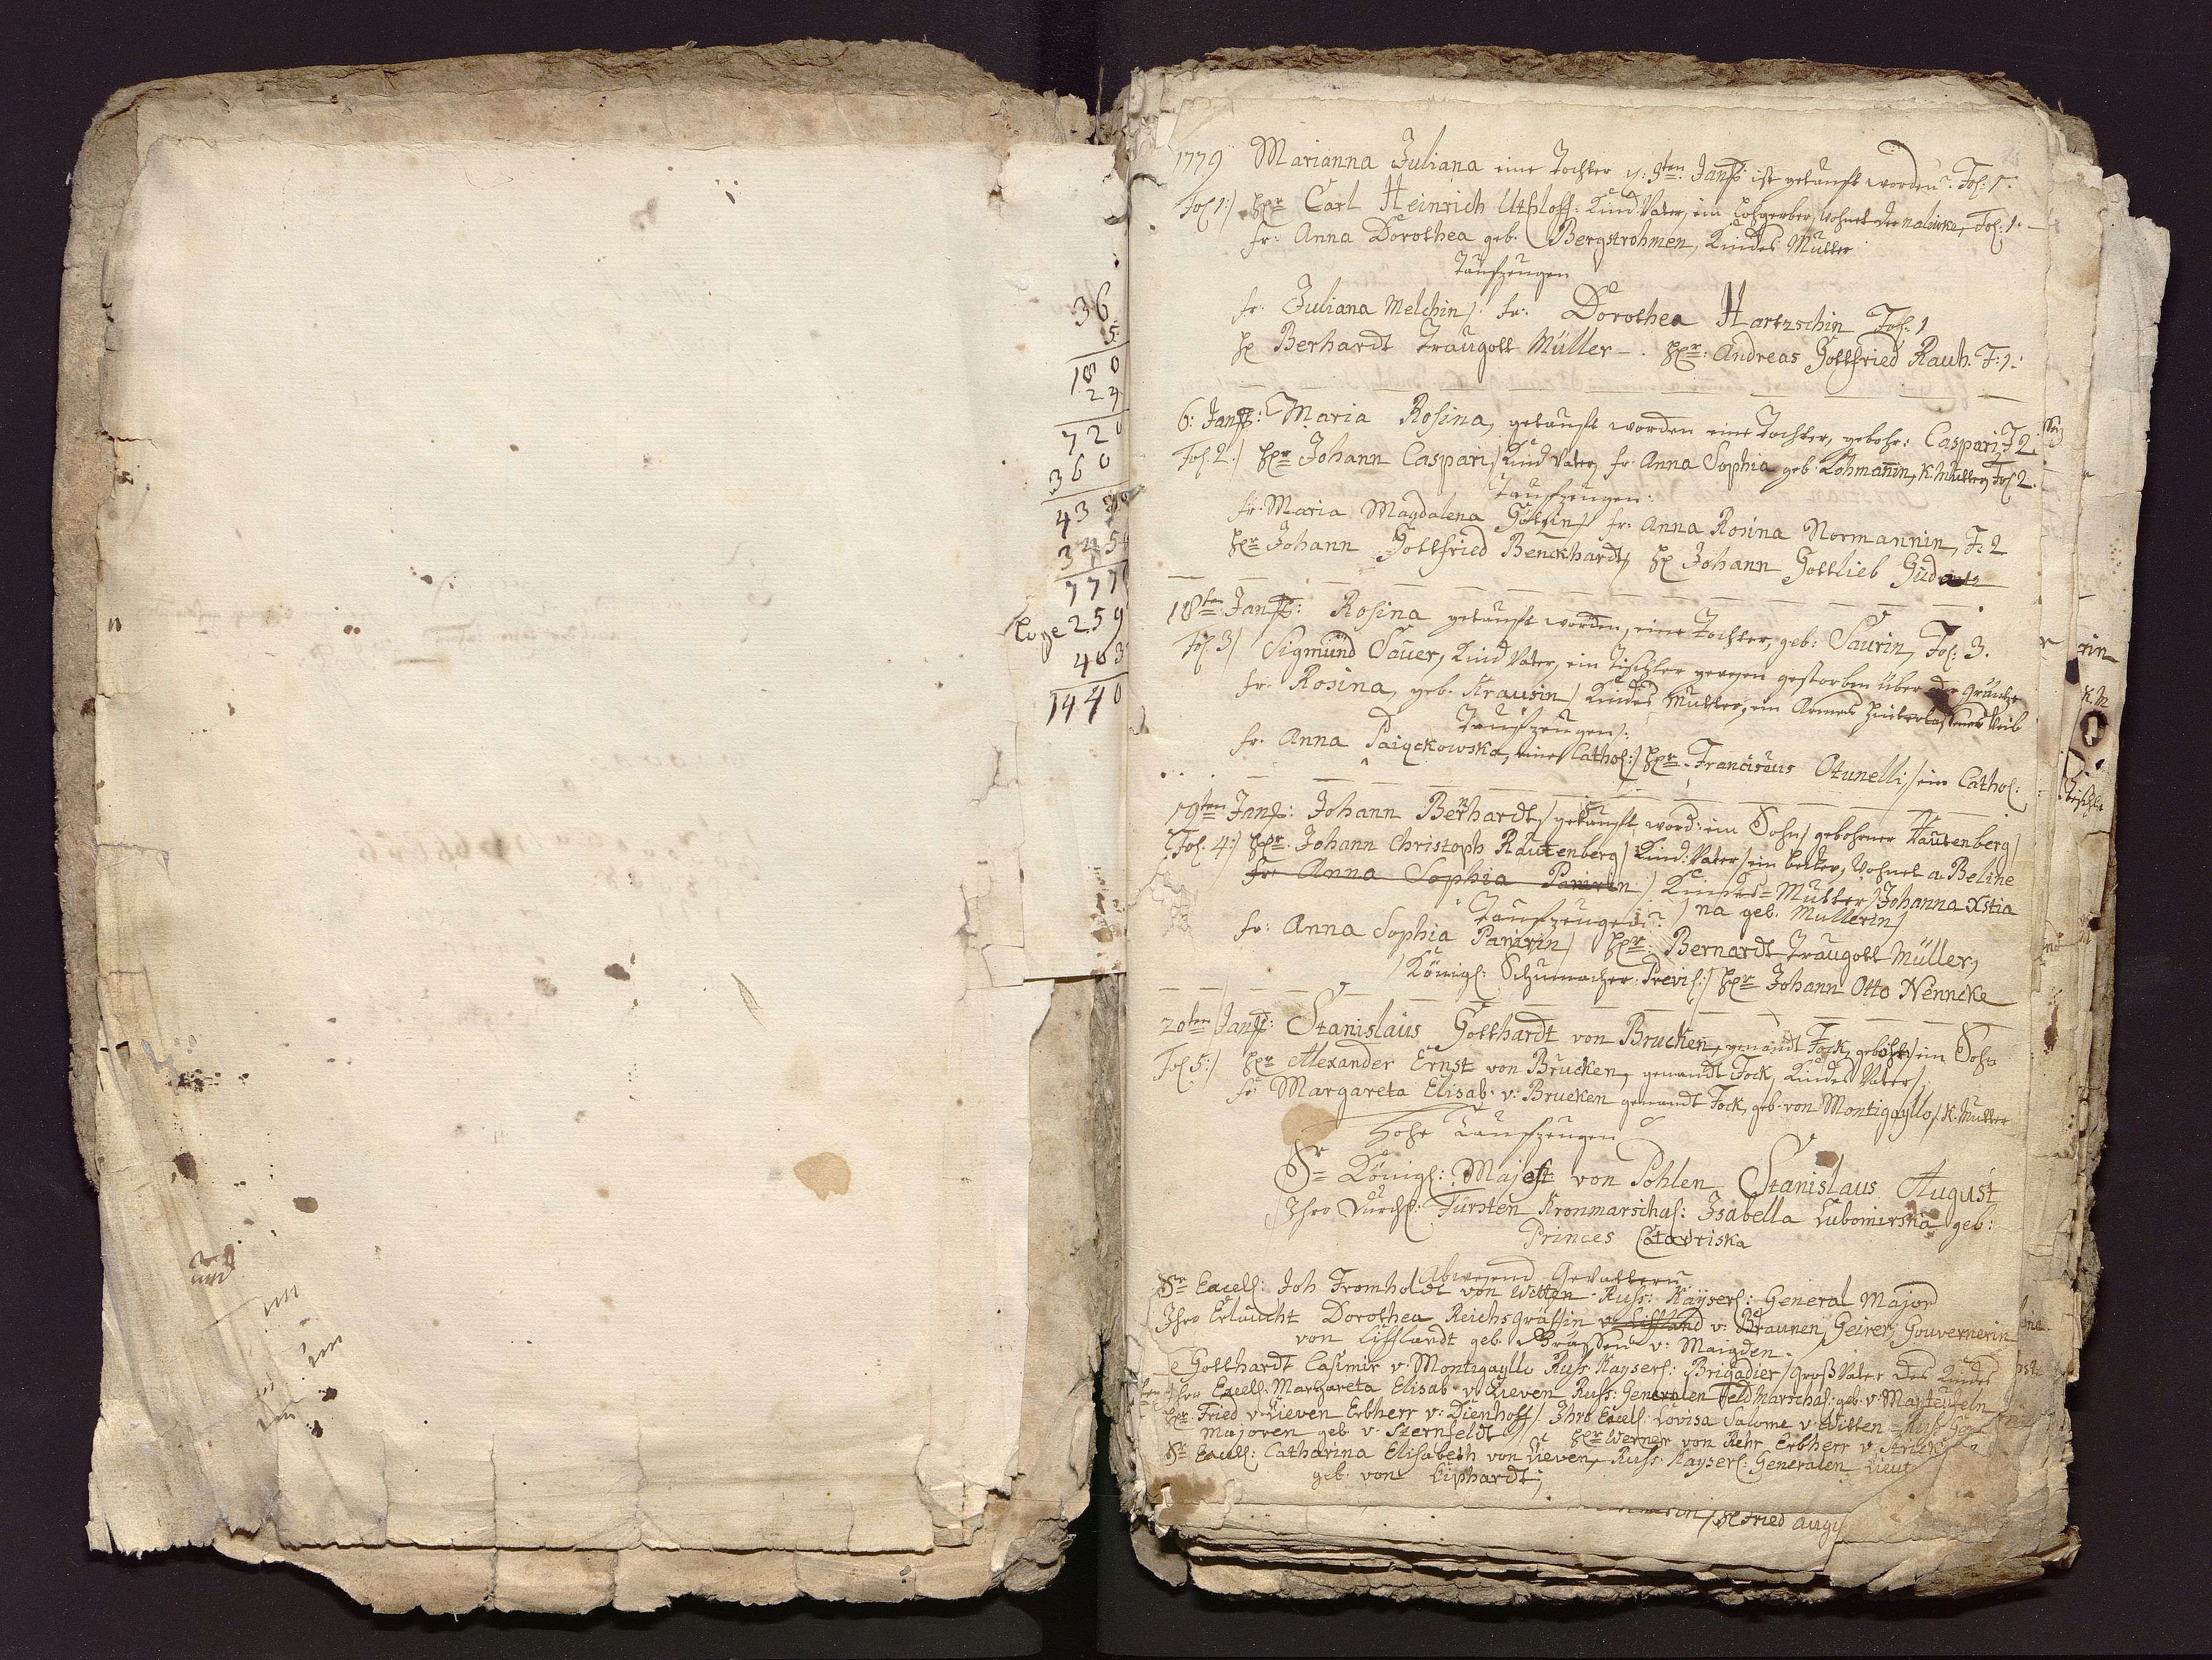 36
5
180
24
720
360
43
7770
Loge 259
403
1440
1779 Marianna Juliana eine Tochter d: 3ten Jan: ist getauft worden. Fol: 1.
Fol: 1:/ Hr Carl Heinrich Uthloff. Kind Vater, ein Lohgerber, wohnet der nalewke, Fol: 1.
fr: Anna Dorothea geb. Bergstrohmen, Kindes Mutter
Taufzeugen
fr: Juliana Melchin/. fr: Dorothea Hartzschin Fol: 1
H Berhardt Traugott Müller –. Hr: Andreas Gottfried Rauh. F: 1:
6: Jan: Maria Rosina, getauft worden eine Tochter, gebohr: Caspari, F 2.
Fol: 2./ Hr Johann Caspari, Kind Vater, fr. Anna Sophia geb. Lohmanin, K. Mutter, Fol 2.
Taufzeugen:
fr: Maria Magdalena Götzin/ fr: Anna Rosina Normannin, F. 2
Hr Johann Gottfried Benckhardt, H Johann Gottlieb
18ten Jan: Rosina getauft worden, eine Tochter, geb: Saurin, Fol: 3.
Fol. 3/ Sigmünd Sauer, Kind Vater, ein Tischler gewesen gestorben über der Gräntze
fr. Rosina, geb. Krausin/ Kindes Mutter, ein Armes hinterlassenes Weib
Taufzeugen:
fr. Anna Paigckowska, eine Cathol:/ Hr. Franciscus Otunelli/ ein Cathol:
19ten Jan: Johann Bernhardt/ getauft word: ein Sohn/ gebohrner Rautenberg/
Fol. 4:/ Hr. Johann Christoph Rautenberg/ Kind: Vater/ ein becker, wohnet a Beline
fr Anna Sophia Panirin/ Kindes-Mutter/ Johanna Xstia
na geb. Mullerin/
Taufzeugen:
fr: Anna Sophia Panirin/ Hr: Bernardt Traugott Müller,
/Königl: Schumacher. Previl:/ Hr Johann Otto Nenncke
20ten Jan: Stanislaus Gotthardt von Brucken, genandt Fock, gebohr/ ein Sohn
Fol 5:/ Hr Alexander Ernst von Brucken, genandt Fock, Kindes Vater/
fr Margareta Elisab. v: Brucken genandt Fock, geb. von Montigayllo/ K. Mutter
Hohe Taufzeugen
Sr Königl: Majest von Pohlen Stanislaus August
Ihro Durchl: Fürsten Kronmarschal: Isabella Lubomirska geb:
Princes Catadriska
Abwesend Gevattern
Sr Excell: Joh Fromholdt von Witten Russ: Kaÿserl: General Major
Ihro Erlaucht Dorothea Reichsgräffin v Liffland v: Braunen, Geirer, Gouvernerin
von Lifflandt geb. Gräffen v: Maigden.
Gotthardt Casimir v: Montigayllo Russ Kayserl: Brigadier/ Groß Vater des Kindes
Ihro Excell: Margareta Elisab v: Lieven Russ: Generalen Feldmarschal: geb. v: Manteufeln
Hr. Fried v: Lieven Erbherr v: Dienhoff/. Ihro Excell: Lovisa Salome v: Witten Russ Gen
Majoren geb v. Sternfeldt/ Hr Werner von Rehr Erbherr v:
Sr Excell: Catharina Elisabeth von Lieven, Russ. Kayserl: Generalen Lieut
geb. von Liphardt;
/H Fried Augu